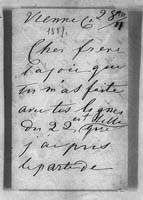 Vienne Ce 28
1881
Cher frère
la joie que
tu m'as faite
avec tes lignes
du 22 est telle que
j'ai pris